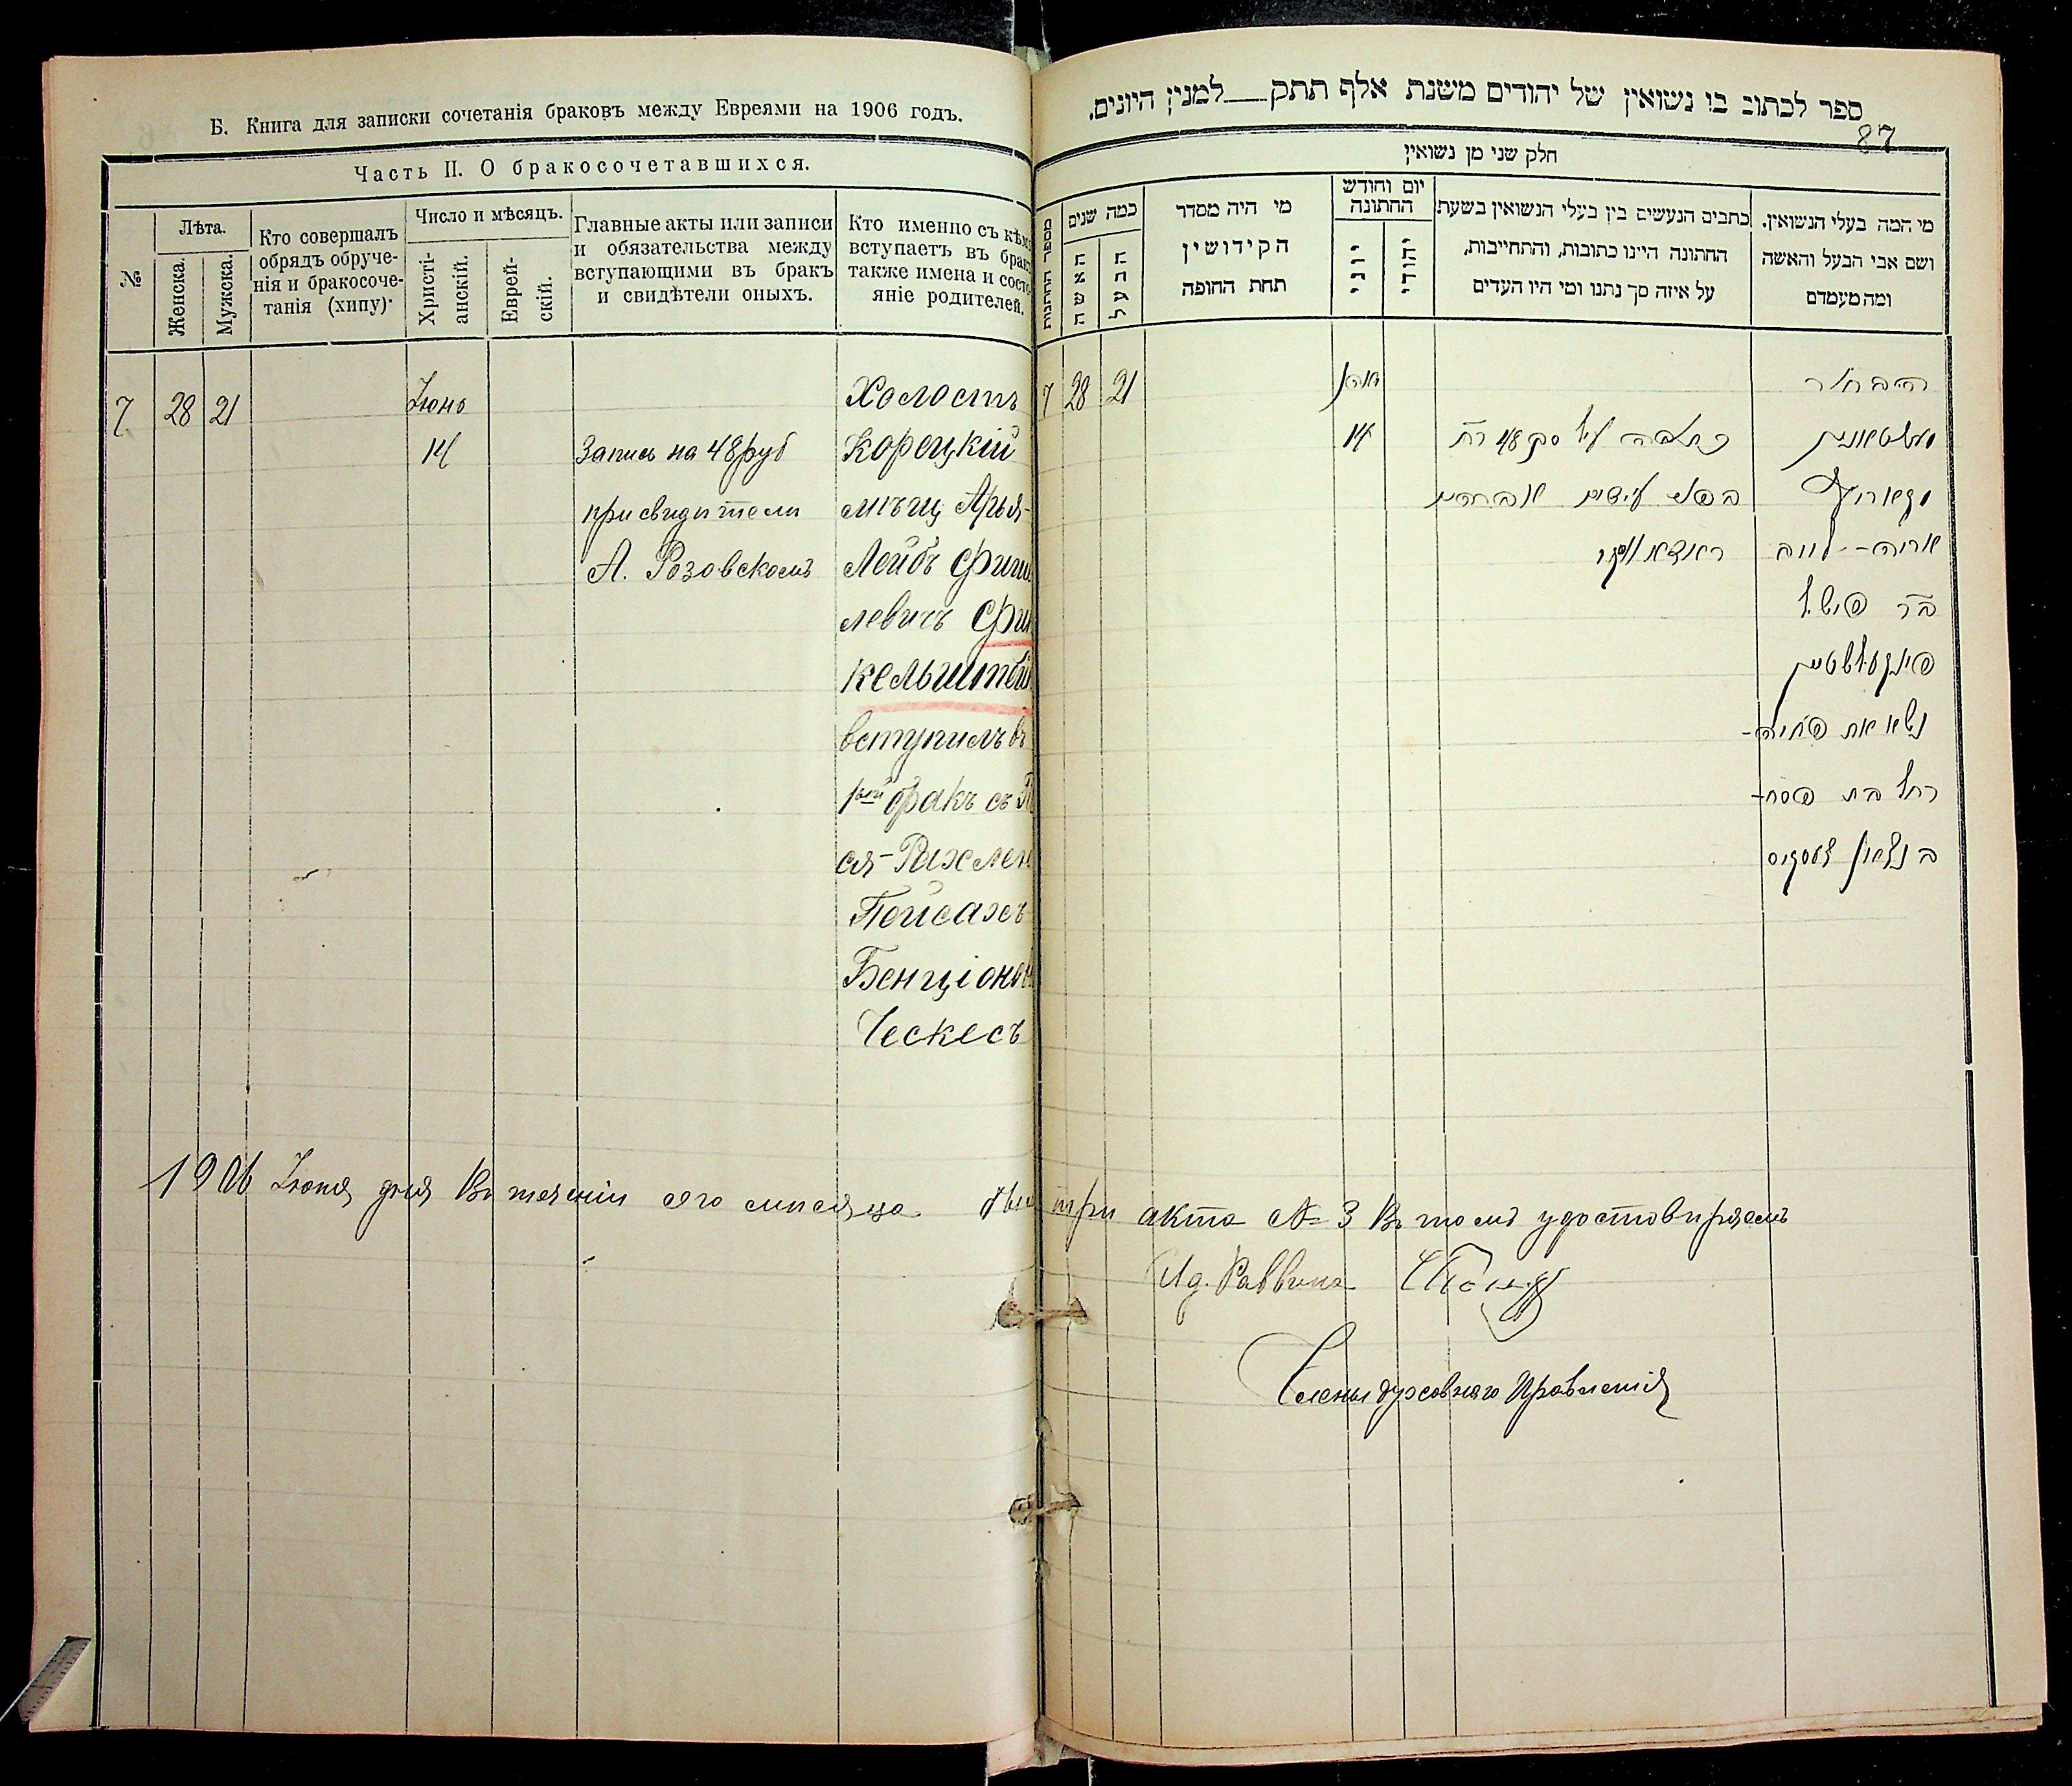 Б. Книга для записки сочетанія браковъ между Евреями на 1906 годъ.
Часть II. О бракосочетавшихся.
№
Лѣта.
Женска.
Мужска.
Кто совершалъ
обрядъ обруче-
нія и бракосоче-
танія (хипу).
Число и мѣсяцъ.
Христі-
анскій.
Еврей-
скій.
Главные акты или записи
и обязательства между
вступающими въ бракъ
и свидѣтели оныхъ.
Кто именно съ кѣмъ
вступаетъ въ бракъ
также имена и состо-
яніе родителей.
7 28 21
Іюнь
14
Запись на 48 руб
при свидѣтели
А. Розовскомъ
Холостъ
Корецкій
мѣщ Арья-
Лейбъ Фиш
левичъ Фин
кельштей
вступилъ въ
1ый бракъ съ П
ся-Рихлею
Пейсахъ
Бенціонов
Ческесъ
ספר לכתוב בו נשואין של יהודים משנת אלף תתק___למנין היונים.
87
חלק שני מן נשואין
מספר החתונות
כמה שנים
האשה
הבעל
מי היה מסדר
הקידושין
תחת החופה
יום וחודש
החתונה
יוני
יהודי
כתבים הנעשים בין בעלי הנשואין בשעת
החתונה היינו כתובות, והתחייבות,
על איזה סך נתנו ומי היו העדים
מי המה בעלי הנשואין.
ושם אבי הבעל והאשה
ומה מעמדם
7 28 21
14
כתובה על סך 48 רו
הבחור
אריה-לייב
בר פישל
פינקעלשטיין
נשא את פסיה-
רחל בת פסח-
בנציון
1906 Іюня дня Въ теченіи сего мѣсяца были три акта № 3 Въ томъ удостовѣряемъ
Ид. Раввина
Члены духовнаго Правленія